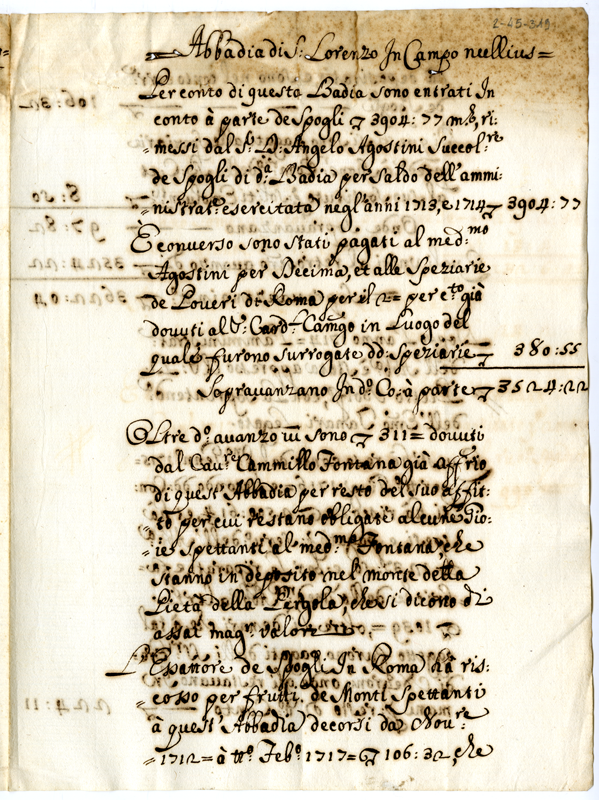 2-45-319
Abbadia di S: Lorenzo In Campo nullius=
Per conto di questa Badia sono entrati In
conto à parte de Spogli 3904: 77 m.ta, ri-
-messi dal S.r D: Angelo Agostini Succol.re
de Spogli di d.a Badia per saldo dell'ammi-
-nistrat.e esercitata negl'anni 1713, e 1714 3904:77
E converso sono stati pagati al med.mo
Agostini per Decima, et alle Speziarie
de Poveri di Roma per il 2= per c.to già
dovuti al S: Card.l Cam.go in Luogo del
quale furono surrogate dd: Speziarie 380:55
Sopravanzano In d.o Co: à parte 3524:22
Oltre d.o avanzo vi sono 311= dovuti
dal Cav.re Cammillo Fontana già aff.rio
di quest'Abbadia per resto del suo affit-
-to per cui restano obligate alcune Gio-
-ie spettanti al med.mo Fontana, che
stanno in deposito nel monte della
Pietà della Pergola, che si dicono di
assai mag.r valore
L'Esattore de Spogli In Roma hà ris-
-cosso per frutti de Monti Spettanti
à quest'Abbadia decorsi da Nov.re
-1712= à tt.o Feb.o 1717= 106: 32, che